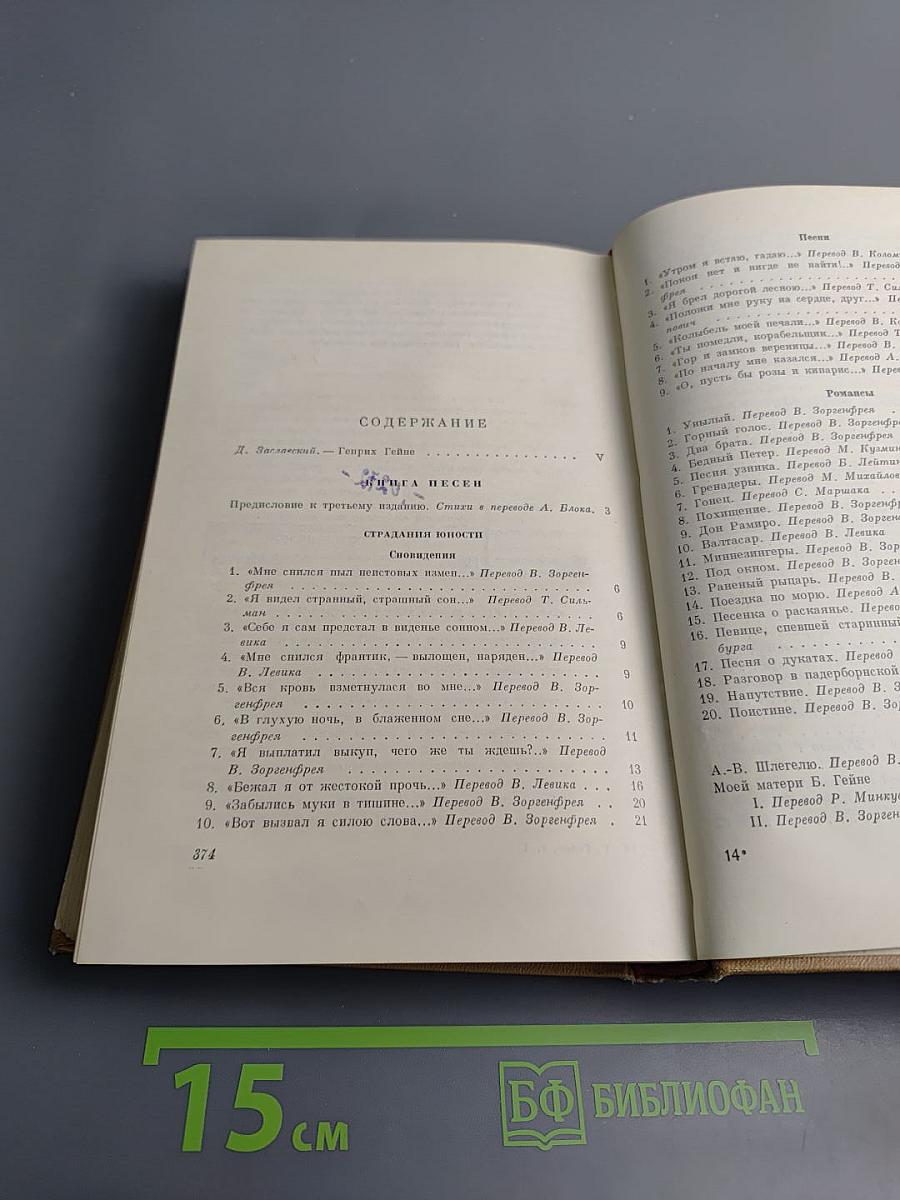 СОДЕРЖАНИЕ
Д. Заславский. — Генрих Гейне . . . . . . . . . . . . . . . . . V
КНИГА ПЕСЕН
Предисловие к третьему изданию. Стихи в переводе А. Блока. 3
СТРАДАНИЯ ЮНОСТИ
Сновидения
1. «Мне снился пыл неистовых измен...» Перевод В. Зорген-
фрея . . . . . . . . . . . . . . . . . . . . . . . . . 6
2. «Я видел странный, страшный сон...» Перевод Т. Силь-
ман . . . . . . . . . . . . . . . . . . . . . . . . . 6
3. «Себе я сам предстал в виденье сонном...» Перевод В. Ле-
вика . . . . . . . . . . . . . . . . . . . . . . . . . 9
4. «Мне снился франтик, — вылощен, наряден...» Перевод
В. Левика . . . . . . . . . . . . . . . . . . . . . . . 9
5. «Вся кровь взметнулася во мне...» Перевод В. Зор-
генфрея . . . . . . . . . . . . . . . . . . . . . . . 10
6. «В глухую ночь, в блаженном сне...» Перевод В. Зор-
генфрея . . . . . . . . . . . . . . . . . . . . . . . 11
7. «Я выплатил выкуп, чего же ты ждешь?..» Перевод
В. Зоргенфрея . . . . . . . . . . . . . . . . . . . . 13
8. «Бежал я от жестокой прочь...» Перевод В. Левика . . . 16
9. «Забылись муки в тишине...» Перевод В. Зоргенфрея . . 20
10. «Вот вызвал я силою слова...» Перевод В. Зоргенфрея . 21
374
Песни
1. «Утром я встаю, гадаю...» Перевод В. Колом
2. «Покоя нет и нигде не найти!..» Перевод
фрея . . . . . . . . . . . . . .
3. «Я брел дорогой лесною...» Перевод Т. Сил
4. «Положи мне руку на сердце, друг...» Пе
нович . . . . . . . . . . . . . .
5. «Колыбель моей печали...» Перевод В. Ко
6. «Ты помедли, корабельщик...» Перевод Т
7. «Гор и замков вереницы...» Перевод В.
8. «По началу мне казался...» Перевод А.
9. «О, пусть бы розы и кипарис...» Перев
Романсы
1. Унылый. Перевод В. Зоргенфрея .
2. Горный голос. Перевод В. Зоргенфре
3. Два брата. Перевод В. Зоргенфрея
4. Бедный Петер. Перевод М. Кузмин
5. Песня узника. Перевод Б. Лейтин
6. Гренадеры. Перевод М. Михайлов
7. Гонец. Перевод С. Маршака . .
8. Похищение. Перевод В. Зоргенф
9. Дон Рамиро. Перевод В. Зорген
10. Валтасар. Перевод В. Левика
11. Миннезингеры. Перевод В. Зор
12. Под окном. Перевод В. Зорген
13. Раненый рыцарь. Перевод В.
14. Поездка по морю. Перевод А
15. Песенка о раскаянье. Перево
16. Певице, спевшей старинный
бурга . . . . . . . .
17. Песня о дукатах. Перевод
18. Разговор в падерборнской
19. Напутствие. Перевод В. З
20. Поистине. Перевод В. Зо
А.-В. Шлегелю. Перевод В.
Моей матери Б. Гейне
I. Перевод Р. Минкус
II. Перевод В. Зорген
14*
15 см
БФ БИБЛИОФАН